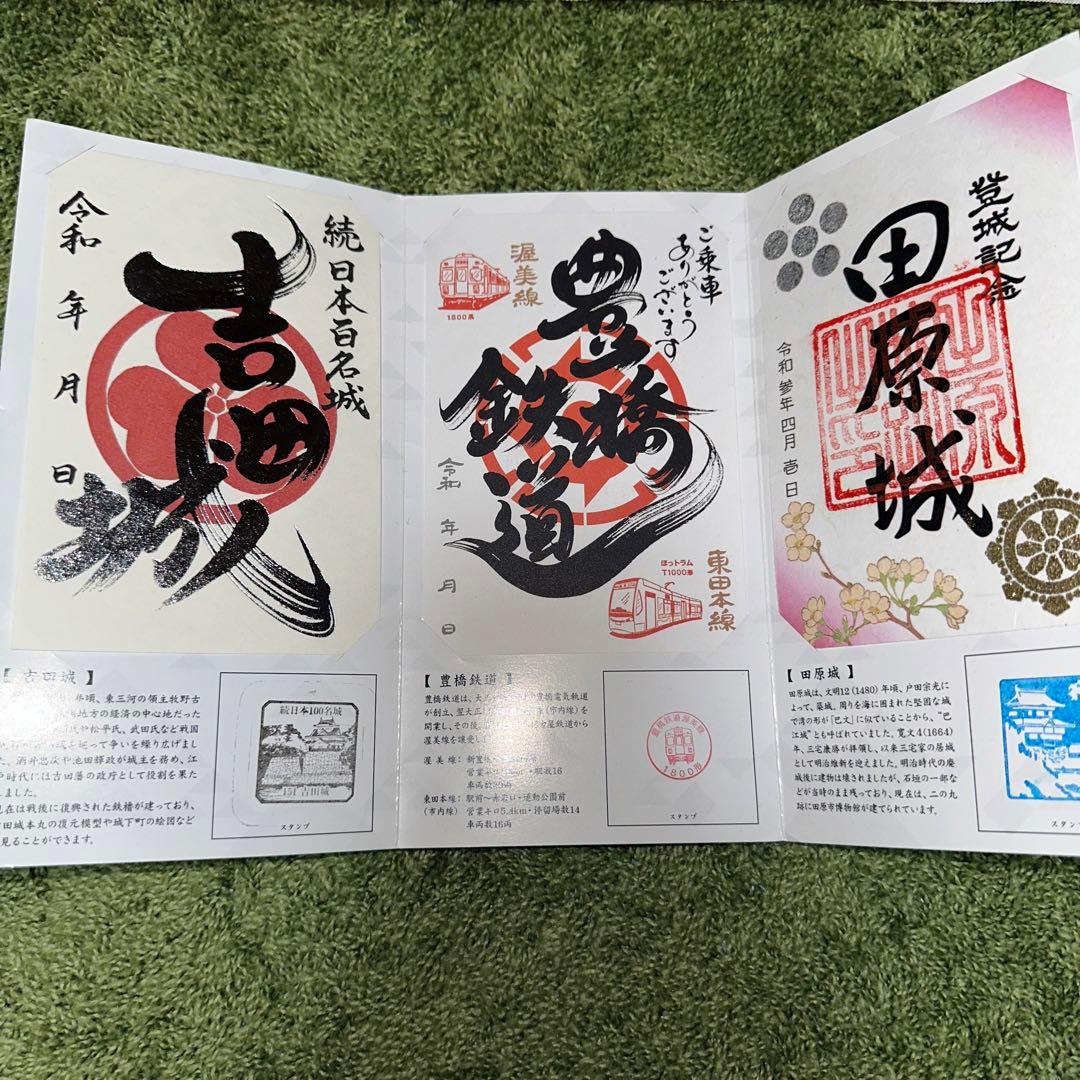 続日本百名城
吉田城
令和 年 月 日
【 吉田城 】
年頃、東三河の領主牧野古
地方の経済の中心地だった
氏や松平氏、武田氏など戦国
争いを繰り広げまし
酒井忠次や池田輝政が城主を務め、江
戸時代には吉田藩の政府として役割を果た
現在は戦後に復興された鉄櫓が建っており、
吉田城本丸の復元模型や城下町の絵図など
見ることができます。
続日本100名城
151 吉田城
スタンプ
ご乗車
ありがとう
ございます
渥美線
1800系
豊橋鉄道
令和 年 月 日
ほっトラム
T1000形
東田本線
【 豊橋鉄道 】
豊橋鉄道は、大正
豊橋電気軌道
が創立、翌大正
(市内線)を
開業し、その後、
名古屋鉄道から
渥美線を譲受し
渥美線:
営業キロ
・駅数16
車両数
東田本線: 駅前~赤岩口・運動公園前
(市内線) 営業キロ5.4km・停留場数14
車両数16両
豊橋鉄道渥美線
1800系
スタンプ
登城記念
田原城
令和参年四月壱日
【 田原城 】
田原城は、文明12(1480)年頃、戸田宗光に
よって、築城。周りを海に囲まれた堅固な城
で湾の形が「巴文」に似ていることから、“巴
江城”とも呼ばれていました。寛文4(1664)
年、三宅康勝が拝領し、以来三宅家の居城
として明治維新を迎えました。明治時代の廃
城後に建物は壊されましたが、石垣の一部な
どが当時のまま残っており、現在は、二の丸
跡に田原市博物館が建てられています。
スタンプ